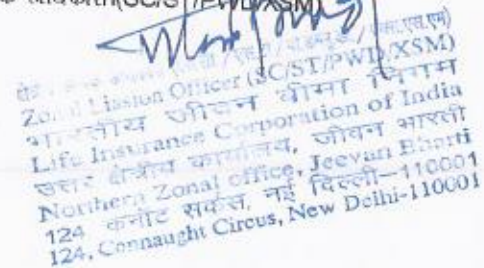 (SC/ST/PWD/XSM)
Zonal Liasion Officer (SC/ST/PWD/XSM)
भारतीय जीवन बीमा निगम
Life Insurance Corporation of India
उत्तर क्षेत्रीय कार्यालय, जीवन भारती
Northern Zonal office, Jeevan Bharti
124 कनॉट सर्कस, नई दिल्ली-110001
124, Connaught Circus, New Delhi-110001